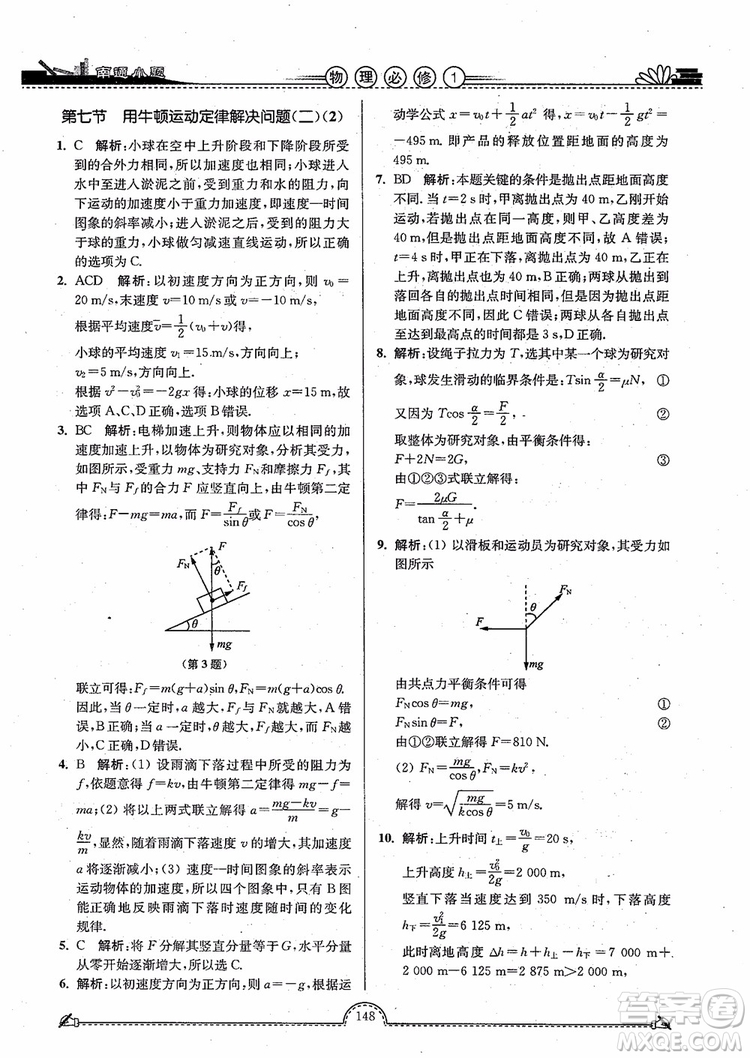 南通小题
物理必修1
第七节 用牛顿运动定律解决问题(二)(2)
1. C 解析:小球在空中上升阶段和下降阶段所受
到的合外力不一样,所以加速度也不一样;小球进入
水中至进入淤泥之前,受到的阻力小于重力,有向
下运动的加速度小于重力加速度,即速度—时间
图象的斜率减小;进入淤泥后,小球受到的阻力大
于球的重力,小球做匀减速直线运动,所以正确
的选项为 C.
2. ACD 解析:以初速度方向为正方向,则 v₀=
20 m/s,末速度 v=10 m/s 或 v=-10 m/s,
根据平均速度v̄=1/2(v₀+v)得:
小球的平均速度 v₁=15 m/s,方向向上;
v₂=5 m/s,方向向上.
根据 v²-v₀²=-2gx 得:小球的位移 x=15 m,故
选项 A、C、D 正确,选项 B 错误.
3. BC 解析:电梯加速上升,则物体应以相同的加
速度加速上升,以物体为研究对象,分析其受力,
如图所示,受重力 mg、支持力 F_N 和摩擦力 F_f,
其中 F_N 和 F_f 的合力 F 应竖直向上,由牛顿第二定
律得:F-mg=ma,而 F=F_f/sin θ或 F=F_N/cos θ,
F
F_N
θ
F_f
θ
mg
(第 3 题)
联立可得:F_f=m(g+a)sin θ,F_N=m(g+a)cos θ.
因此,当 θ 一定时,a 越大,F_f 与 F_N 就越大,A 错
误,B 正确;当 a 一定时,θ 越大,F_f 越大,F_N 越小,
故 C 正确,D 错误.
4. B 解析:(1) 设雨滴下落过程中所受的阻力为
f,依题意得 f=kv,由牛顿第二定律得 mg-f=
ma;(2) 将以上两式联立解得 a=(mg-kv)/m=g-
kv/m,显然,随着雨滴下落速度 v 的增大,加速度
a 将逐渐减小;(3) 速度—时间图象的斜率表示
运动物体的加速度,应该体现随时间增加斜率减
小的特点,所以选项 B 图线描述了雨滴的变化
规律.
5. C 解析:将 F 分解其竖直分量等于 G,水平分量
从零开始逐渐增大,故选 C.
6. 解析:以初速度方向为正方向,根据运
动学公式 x=v₀t+1/2 at² 得 x=v₀t-1/2 gt²=
-495 m. 即产品的释放位置距地面的高度为
495 m.
7. BD 解析:本题关键的条件是抛出点距地面高度
不同. 当 t=2 s 时,甲离抛出点为 40 m,乙刚开始
运动,若抛出点高度相同,则甲、乙高度差为
40 m,但它们抛出点高度不同,故 A 错误;
t=4 s 时,甲正好回到抛出点,乙上升到 40 m,乙正在
上升,所以选项 B 正确;两球从抛出到
落回抛出点的时间相同,所以 C 错误;两球从抛出点
至达到最高点的时间都是 3 s,D 正确.
8. 解析:设绳子拉力为 T,选其中某一个球为研究对
象,球发生滑动的临界条件是:Tsin α/2=μN, ①
又因为 Tcos α/2=F/2, ②
取整体为研究对象,由平衡条件得:
F+2N=2G, ③
由①②③式联立解得:
F=2μG/(tan α/2+μ).
9. 解析:(1) 以滑板和运动员为研究对象,其受力如
图所示
θ
F_N
F
mg
由共点力平衡条件可得
F_Ncos θ=mg, ①
F_Nsin θ=F, ②
由①②联立解得 F=810 N.
(2) F_N=mg/cos θ,F_N=kv²,
解得 v=√(mg/(kcos θ))=5 m/s.
10. 解析:上升时间 t上=v₀/g=20 s,
上升高度 h上=v₀²/2g=2 000 m,
竖直下落当速度达到 350 m/s 时,下落高度
h下=v₁²/2g=6 125 m,
此时离地高度 Δh=h上-h下+7 000 m=
2 000 m-6 125 m=2 875 m>0,所以
148
答案圈
MXQE.COM